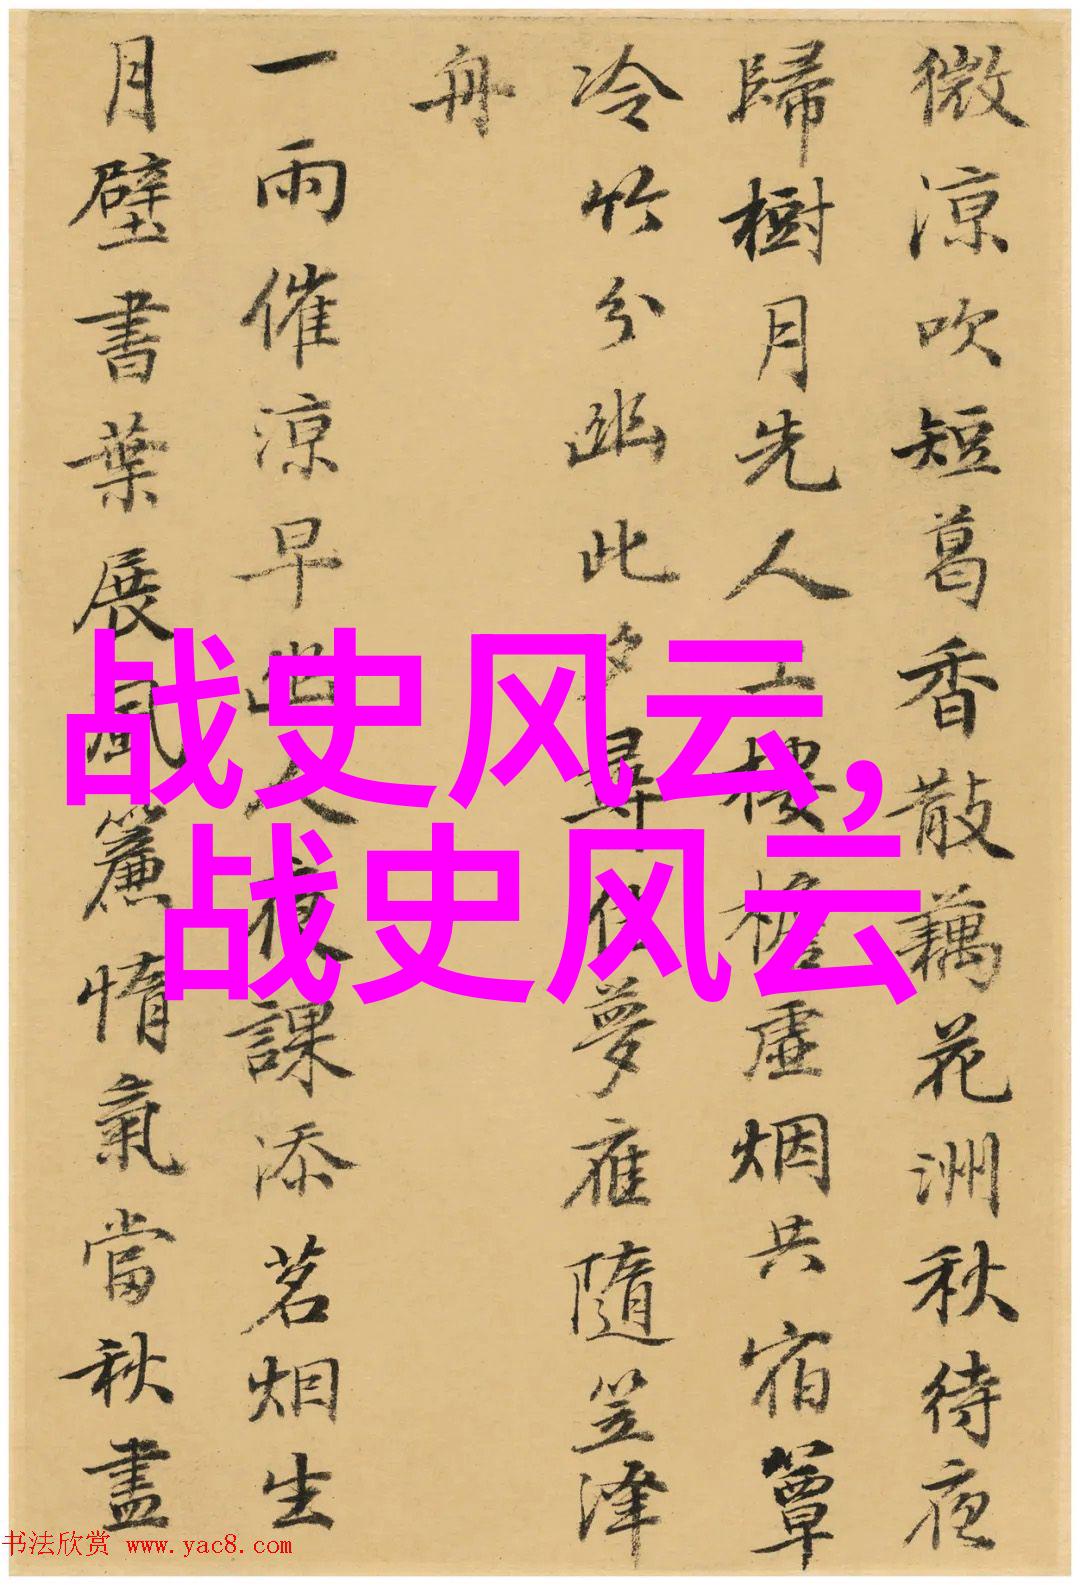 微涼吹短葛香散藕花洲秋待夜
歸樹月先人上樓檐虛烟共宿簟
冷竹分幽此夕尋佳夢雁隨笠澤
舟
一雨催涼早幽人夜課添茗烟生
月壁書葉展風簾惰氣當秋盡
战史风云,
战史风云
书法欣赏 www.yac8.com